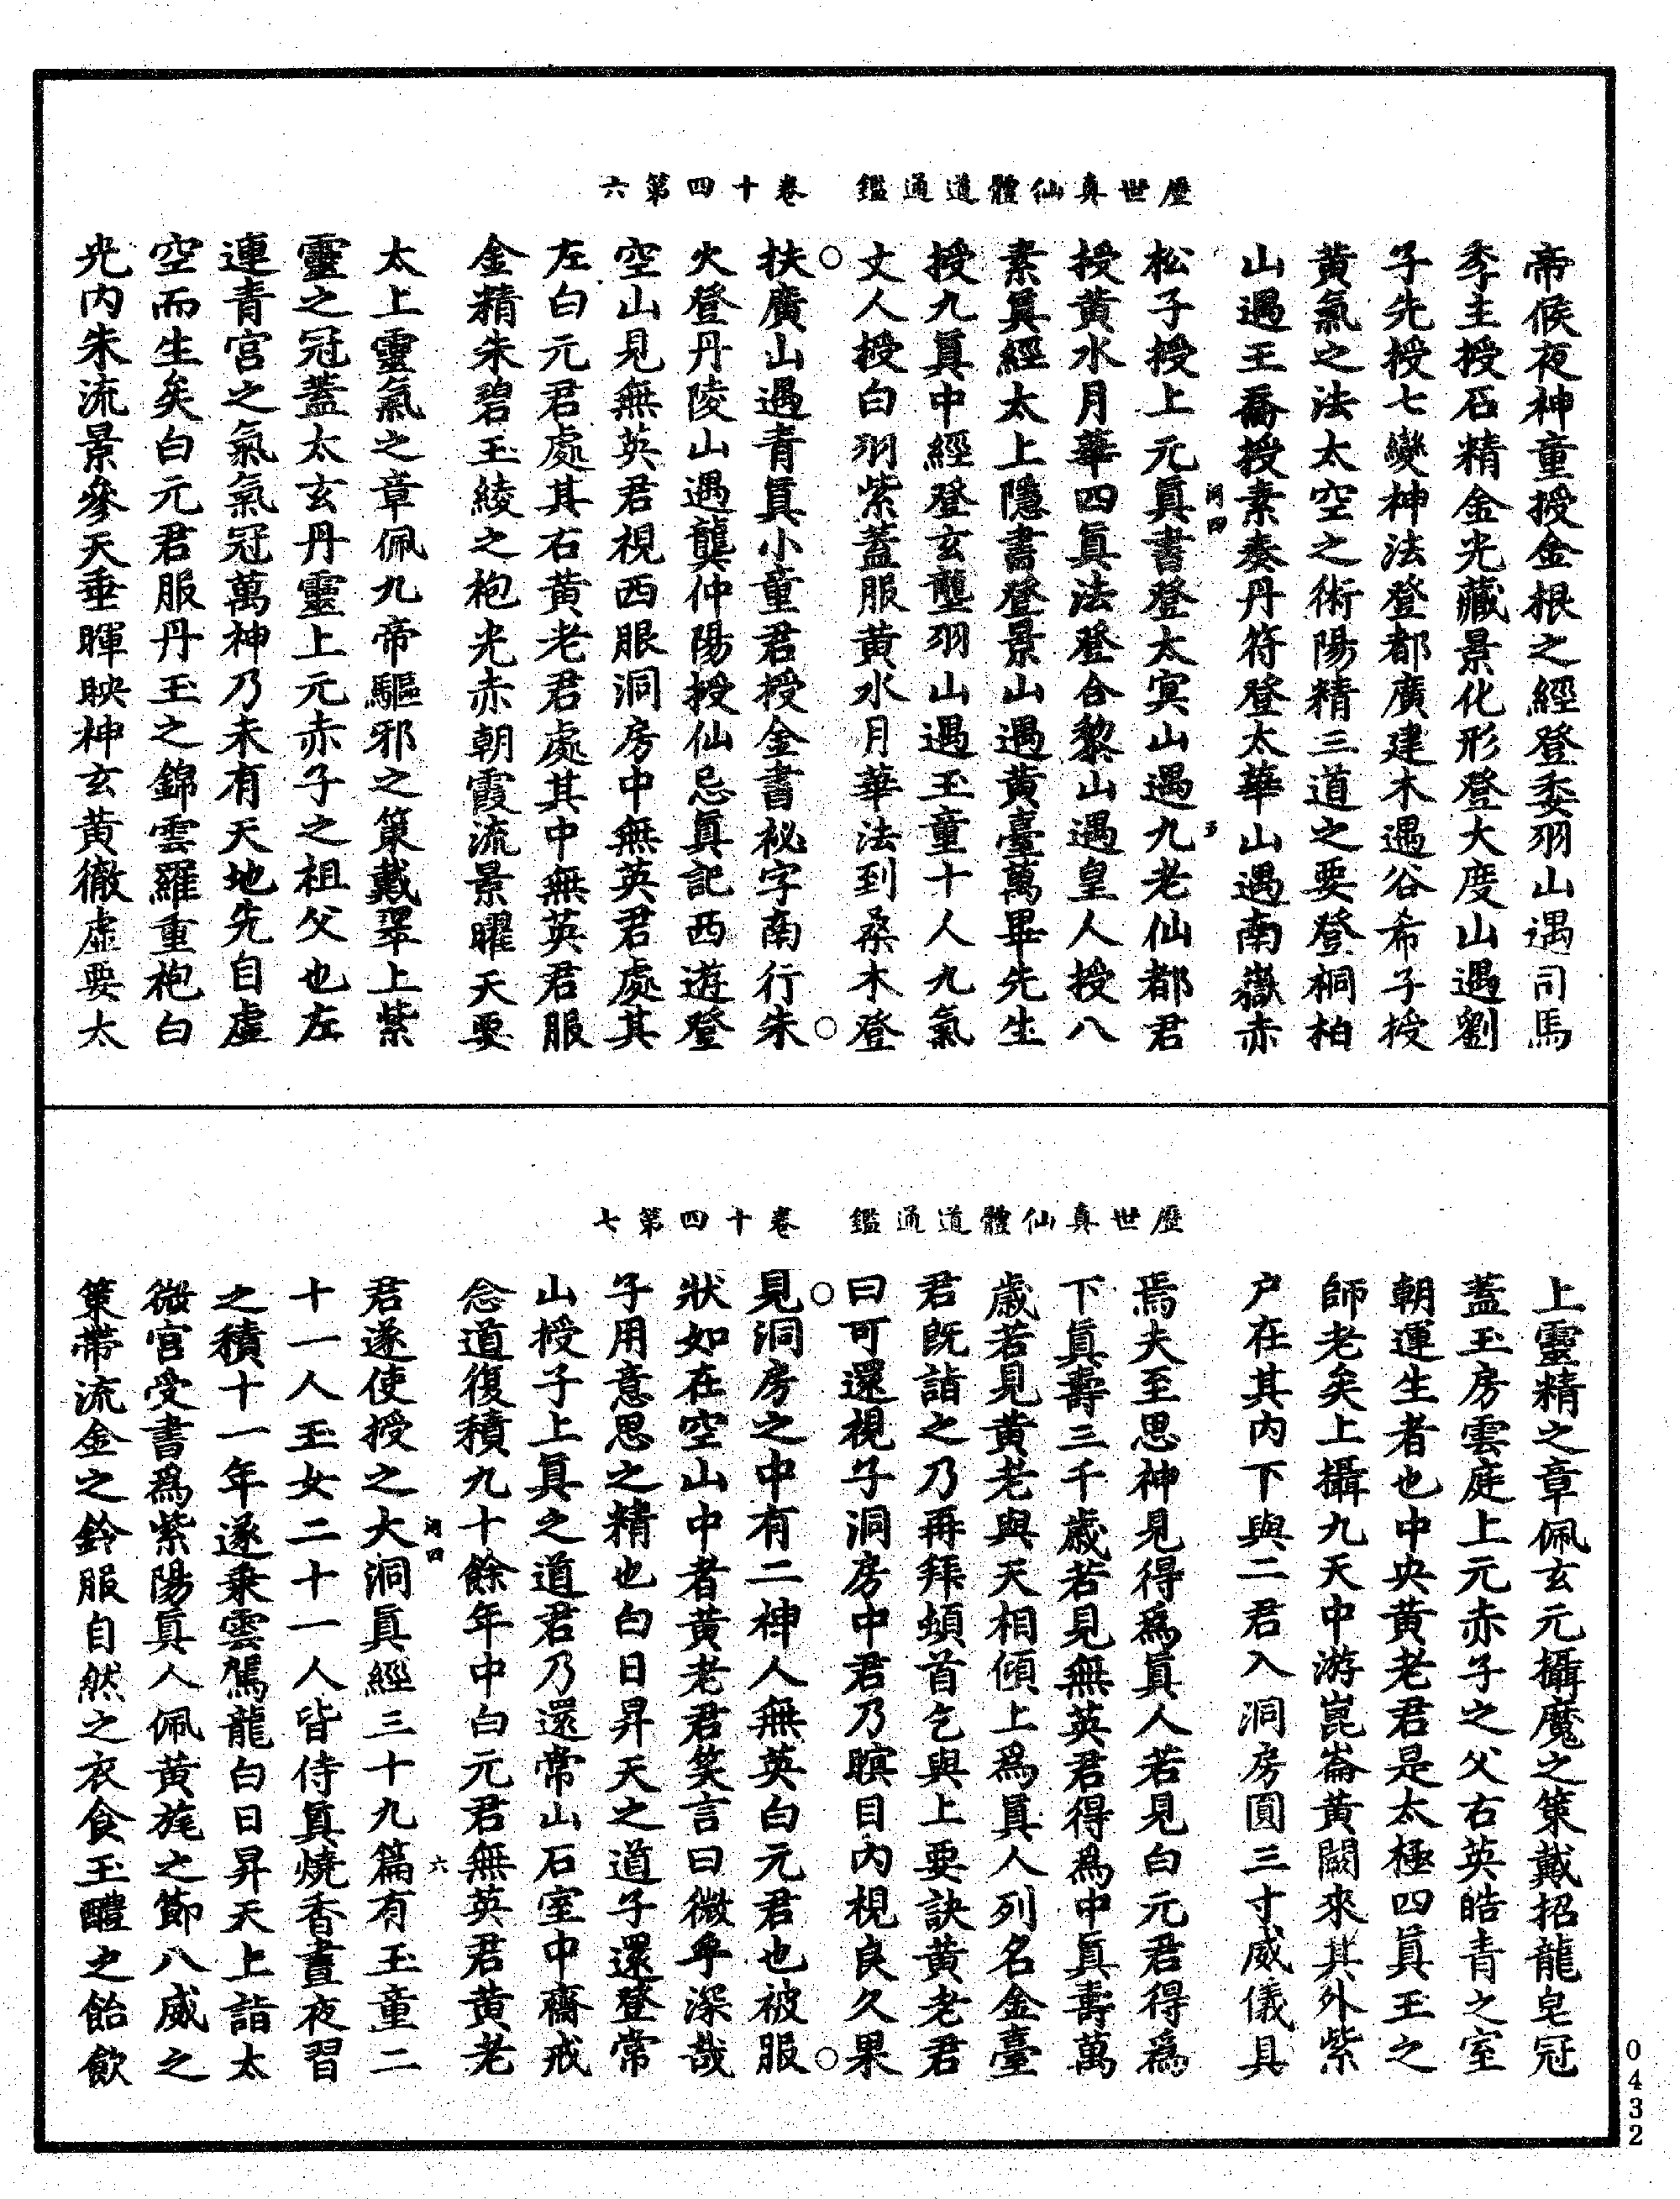 歷世真仙體道通鑑　卷十四第六
帝候夜神童授金根之經登委羽山遇司馬
季主授石精金光藏景化形登大度山遇劉
子先授七變神法登都廣建木遇谷希子授
黃氣之法太空之術陽精三道之要登桐柏
山遇王喬授素奏丹符登太華山遇南嶽赤
松子授上元眞書登太冥山遇九老仙都君
授黃水月華四眞法登合黎山遇皇人授八
素眞經太上隱書登景山遇黃臺萬畢先生
授九眞中經登玄壟羽山遇玉童十人九氣
丈人授白羽紫蓋服黃水月華法到桑木登
扶廣山遇青眞小童君授金書祕字南行朱
火登丹陵山遇龔仲陽授仙忌眞記西遊登
空山見無英君視西眼洞房中無英君處其
左白元君處其右黃老君處其中無英君服
金精朱碧玉綾之袍光赤朝霞流景曜天要
太上靈氣之章佩九帝驅邪之策戴翠上紫
靈之冠蓋太玄丹靈上元赤子之祖父也左
連青宮之氣氣冠萬神乃未有天地先自虛
空而生矣白元君服丹玉之錦雲羅重袍白
光內朱流景參天垂暉映神玄黃徹虛要太
歷世真仙體道通鑑　卷十四第七
上靈精之章佩玄元攝魔之策戴招龍皂冠
蓋玉房雲庭上元赤子之父右英皓青之室
朝運生者也中央黃老君是太極四眞王之
師老矣上攝九天中游崑崙黃闕來其外紫
户在其內下與二君入洞房圓三寸威儀具
焉夫至思神見得爲眞人若見白元君得爲
下眞壽三千歲若見無英君得爲中眞壽萬
歲若見黃老與天相傾上爲眞人列名金臺
君既詣之乃再拜頓首乞與上要訣黃老君
曰可還視子洞房中君乃瞑目內視良久果
見洞房之中有二神人無英白元君也被服
狀如在空山中者黃老君笑言曰微乎深哉
子用意思之精也白日昇天之道子還登常
山授子上眞之道君乃還常山石室中齋戒
念道復積九十餘年中白元君無英君黃老
君遂使授之大洞眞經三十九篇有玉童二
十一人玉女二十一人皆侍眞燒香晝夜習
之積十一年遂乘雲駕龍白日昇天上詣太
微宮受書爲紫陽眞人佩黃旄之節八威之
策帶流金之鈴服自然之衣食玉醴之飴飲
0432